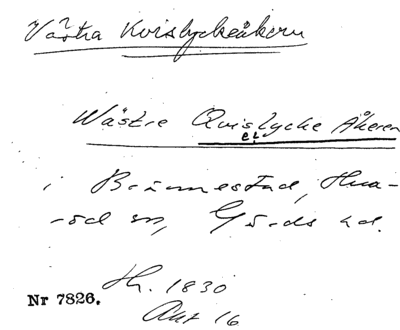 Västra Kvislyckeåkern
Wästre Qvislycke Åkeren
i Brännestad, Hua-
röd sn, Gärds hd.
Hh. 1830
Nr 7826.
Akt 16